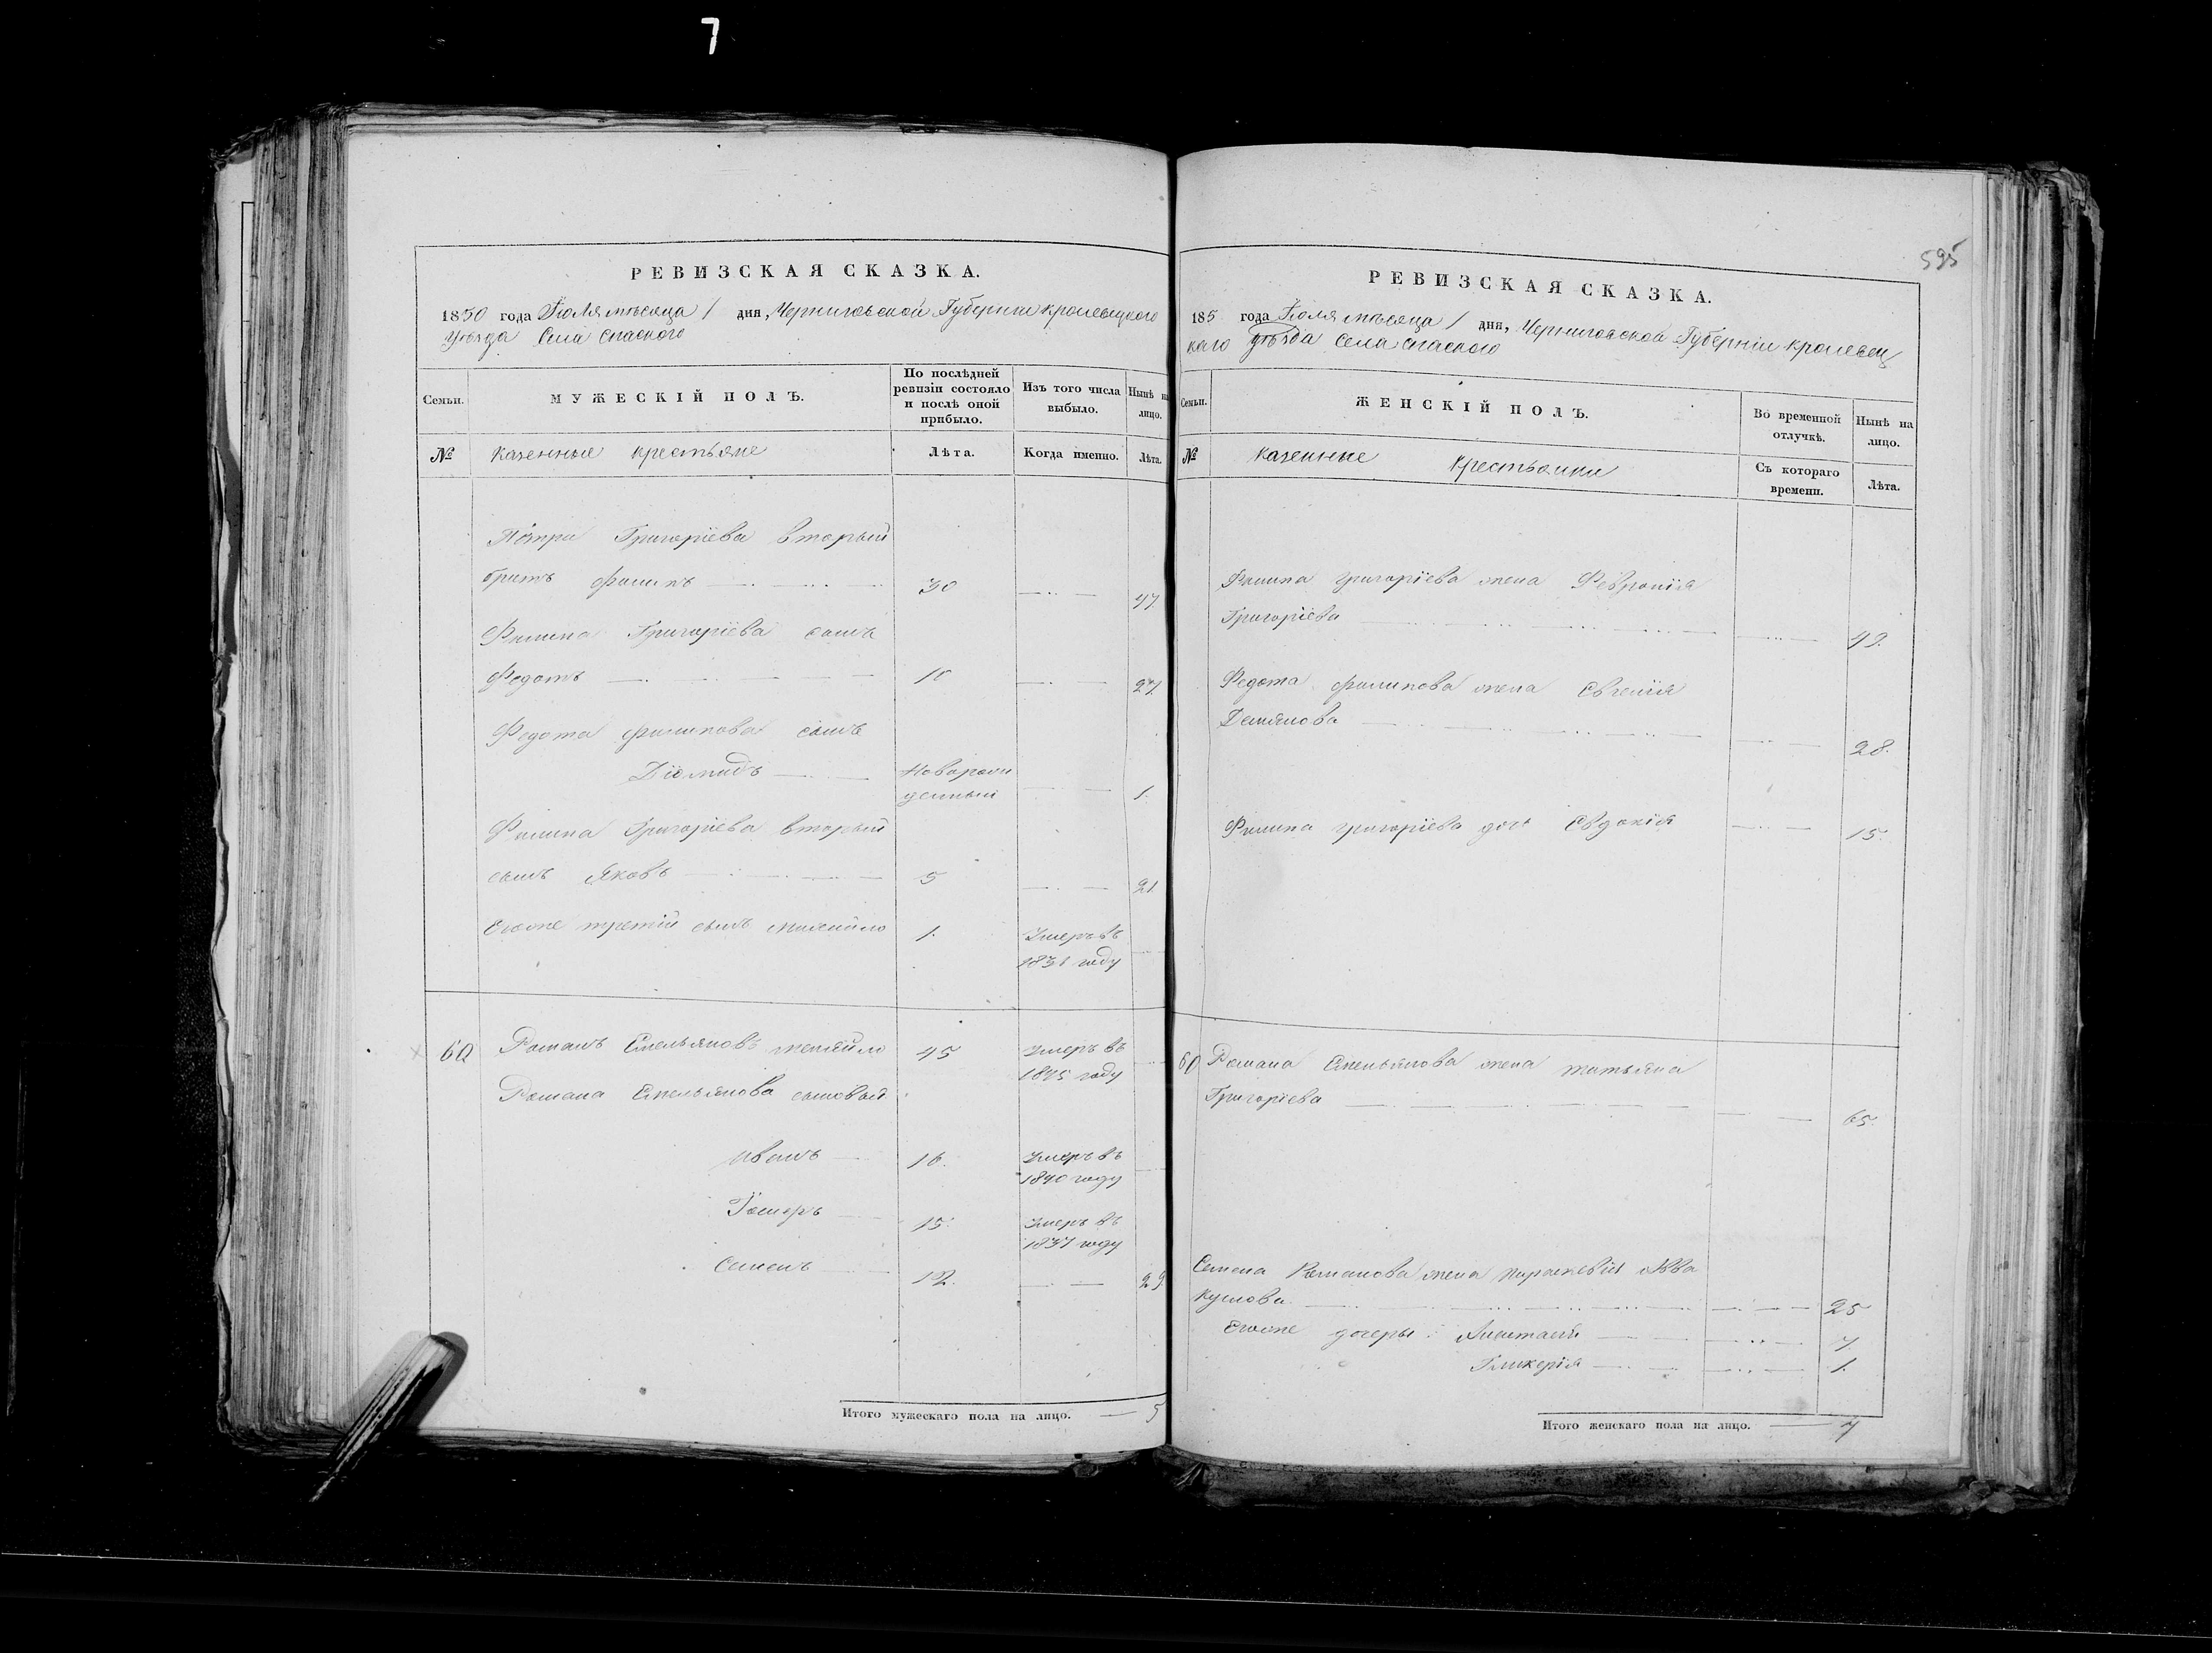 7
РЕВИЗСКАЯ СКАЗКА.
1850 года Іюля мѣсяца 1 дня, Черниговской Губерніи Кролевецкого
Уѣзда Села Спаского
Семьи.
МУЖЕСКІЙ ПОЛЪ.
По послѣдней ревизіи состояло и послѣ оной прибыло.
Изъ того числа выбыло.
Нынѣ на лицо.
№
Казенные крестьяне
Лѣта.
Когда именно.
Лѣта.
Григоріева вторый
братъ Филипъ 30 47.
Филипа Григоріева сынъ
Федотъ 10 27.
Федота Филипова сынъ
Діомидъ Новорож
денный 1.
Филипа Григоріева вторый
сынъ Яковъ 5 21.
Егоже третій сынъ 1. Умеръ въ
1831 году
60 Романъ Емельяновъ 45 Умеръ въ
1845 году
Романа Емельянова сыновья
Иванъ 16. Умеръ въ
1840 году
15. Умеръ въ
1837 году
Семенъ 12. 29
Итого мужескаго пола на лицо. 5
595
РЕВИЗСКАЯ СКАЗКА.
185 года Іюля мѣсяца 1 дня, Черниговской Губерніи Кролевец
каго уѣзда Села Спаского
Семьи.
ЖЕНСКІЙ ПОЛЪ.
Во временной отлучкѣ.
Нынѣ на лицо.
№
Казенные Крестьянки
Съ котораго времени.
Лѣта.
Филипа Григоріева жена Февронія
Григоріева 49.
Федота Филипова жена Евгенія
Демянова 28.
Филипа Григоріева дочь Евдокія 15.
60 Романа Емельянова жена Татьяна
Григоріева 65.
Семена Романова жена Параскевія Авва
кумова 25
Егоже дочеры: 7.
Гликерія 1.
Итого женскаго пола на лицо. 7